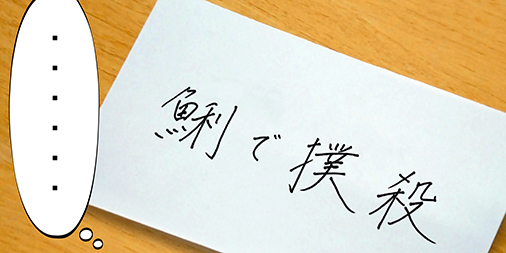 ・・・・・・
鯏で撲殺